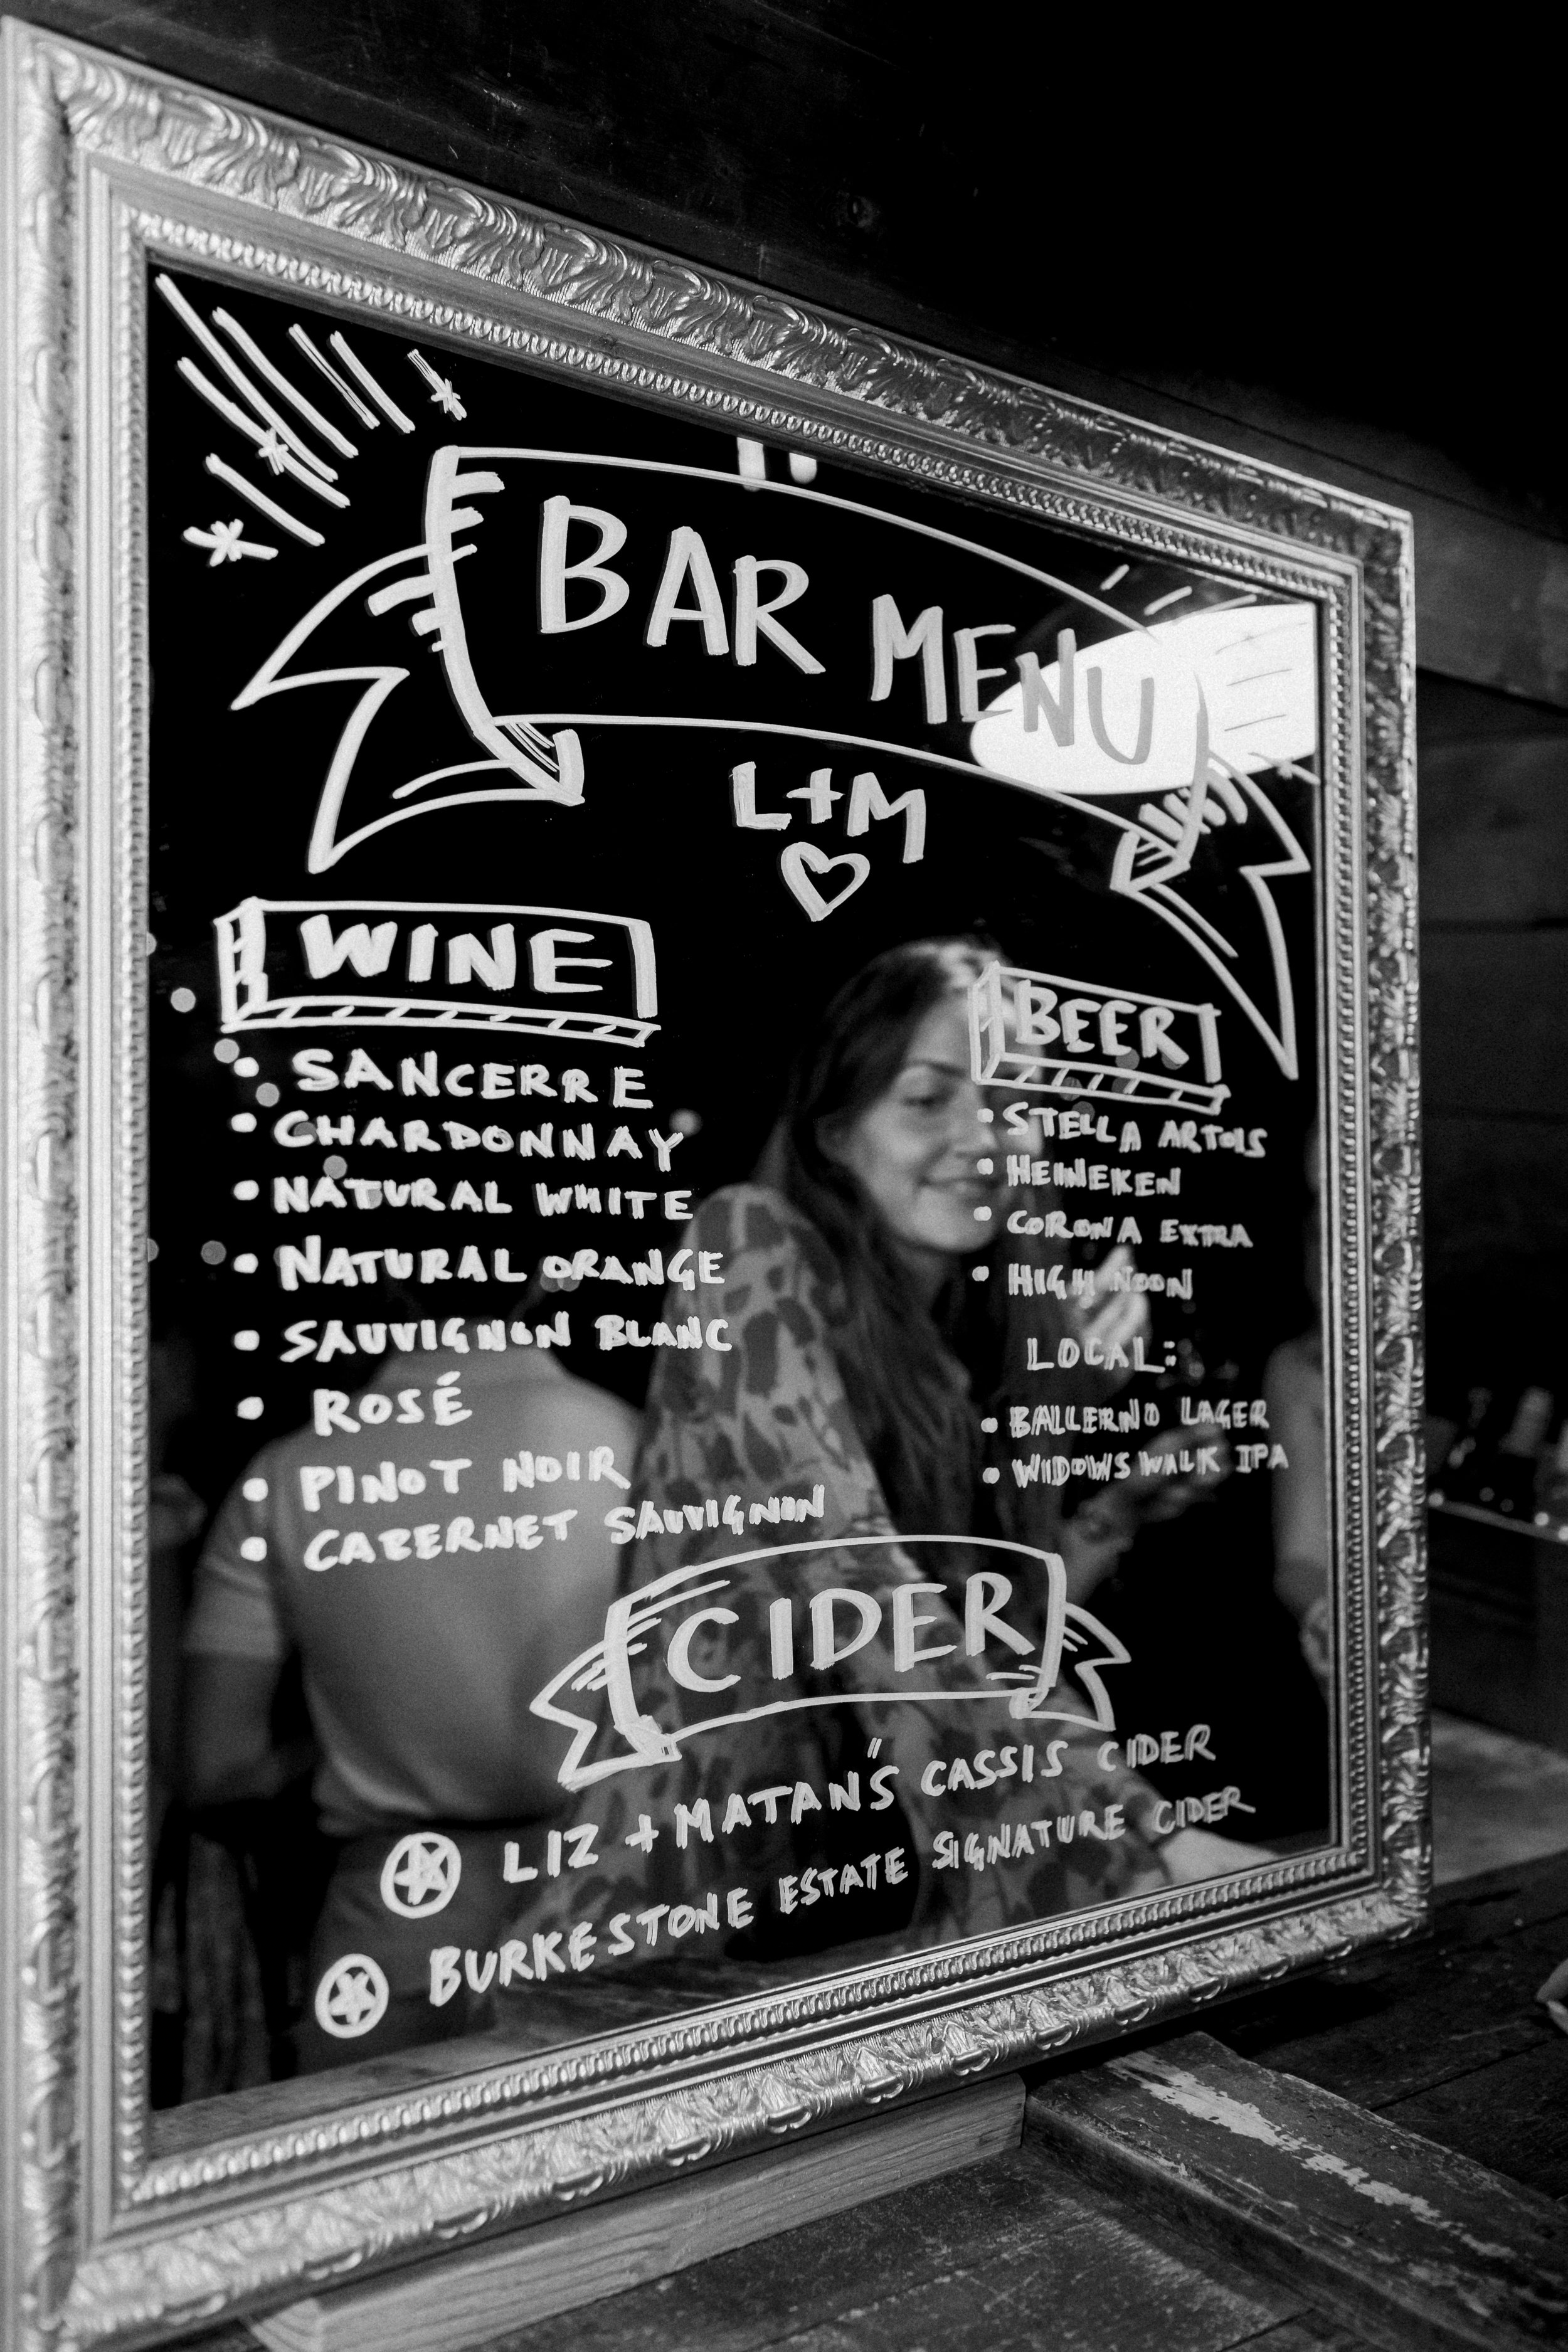 BAR MENU
L+M
WINE
SANCERRE
CHARDONNAY
NATURAL WHITE
NATURAL ORANGE
SAUVIGNON BLANC
ROSÉ
PINOT NOIR
CABERNET SAUVIGNON
BEER
STELLA ARTOIS
HEINEKEN
CORONA EXTRA
HIGH NOON
LOCAL:
BALLERINO LAGER
WIDOWS WALK IPA
CIDER
LIZ + MATAN'S CASSIS CIDER
BURKESTONE ESTATE SIGNATURE CIDER